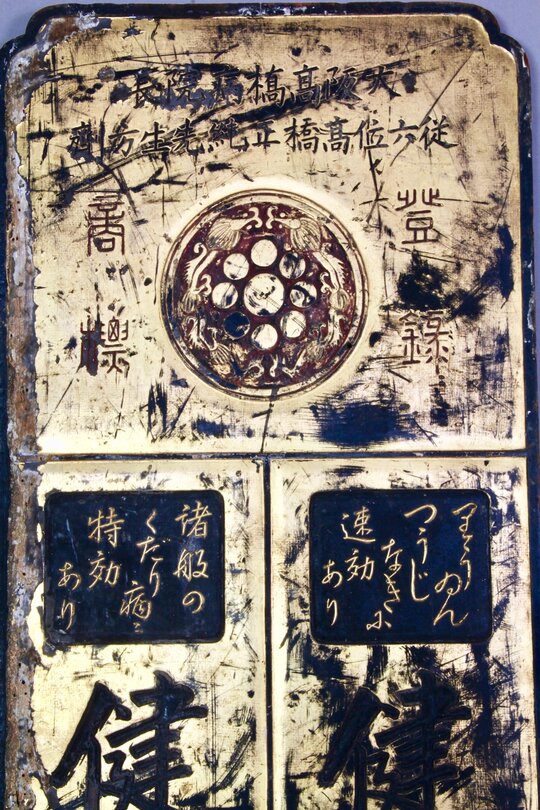 大阪高橋病院長
従六位高橋正純先生方剤
登録
商標
つうじ
なきに
速効
あり
諸般の
くだり病に
特効
あり
健
健